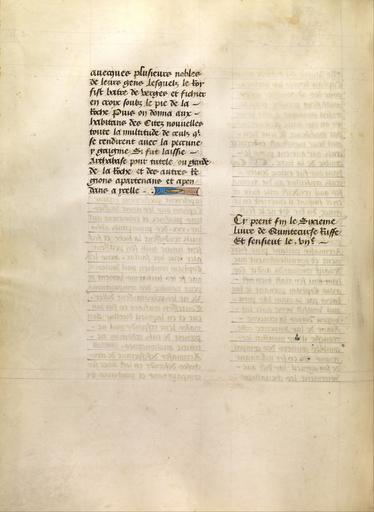 auecques plusieurs nobles
de leurs gens lesquelz le Roy
fist batre de verges et ficher
en croix soubz le pie de la
Roche Puis on donna aux
habitans des Citez nouuelles
toute la multitude de ceulx qͥ
se rendirent auec la pecune
y gaignie Si fut laissie
Arthabase pour tutele ou garde
de la Roche et des autres Re
gions apartenans et apen
dans a ycelle
Cy prent fin le Sixieme
liure de Quinte curse Ruffe
Et sensieut le vijᵉ